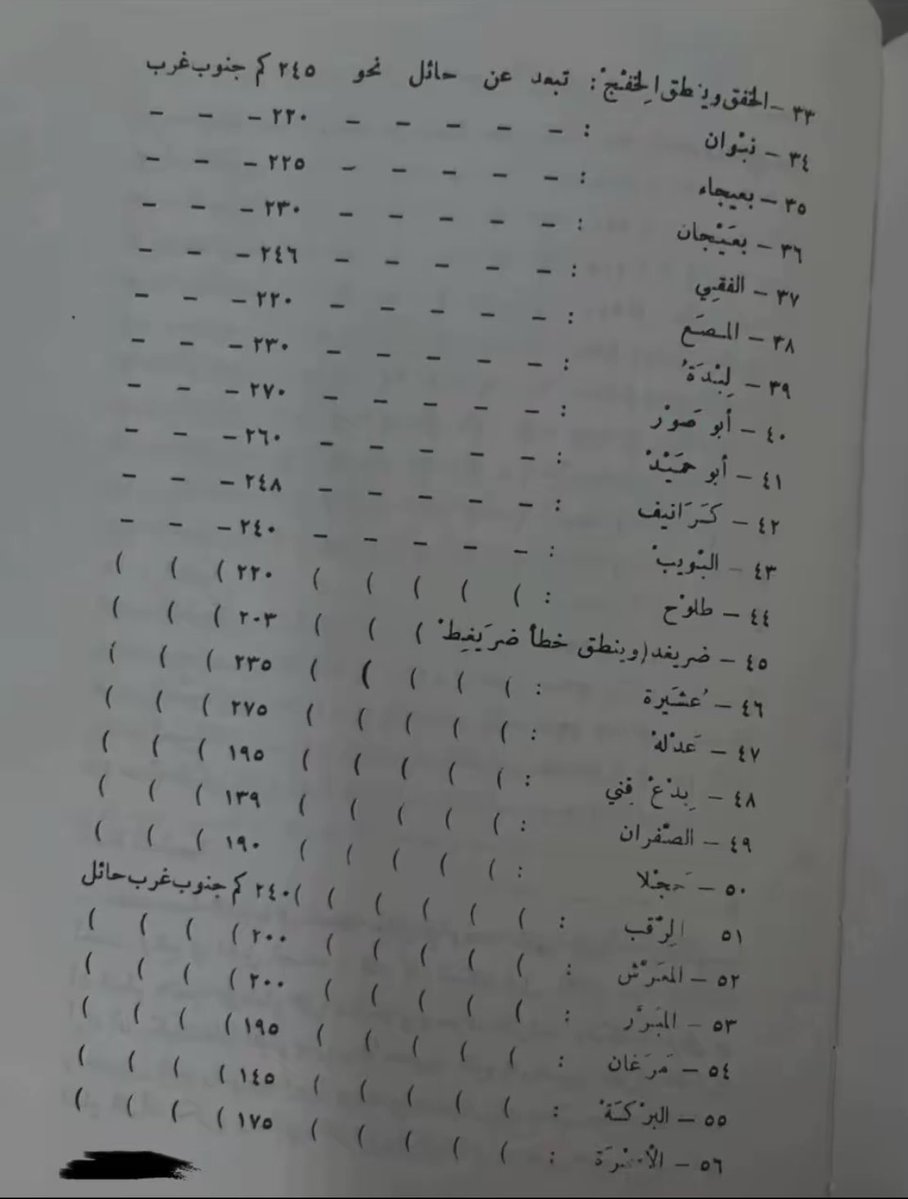 ٣٣ – الخفق وينطق الِخفْجْ : تبعد عن حائل نحو ٢٤٥ كم جنوب غرب
٣٤ – نبْوان : – – – – – ٢٢٠ – – –
٣٥ – بعيجاء : – – – – – ٢٢٥ – – –
٣٦ – بعَيْجان : – – – – – ٢٣٠ – – –
٣٧ – الفقيِي : – – – – – ٢٤٦ – – –
٣٨ – المصَع : – – – – – ٢٢٠ – – –
٣٩ – لِبْدَةْ : – – – – – ٢٣٠ – – –
٤٠ – أبو صَوْر : – – – – – ٢٧٠ – – –
٤١ – أبو حمَيْدْ : – – – – – ٢٦٠ – – –
٤٢ – كَرَانيف : – – – – – ٢٤٨ – – –
٤٣ – البْويبْ : – – – – – ٢٤٠ – – –
٤٤ – طلوْح : ) ) ) ) ) ٢٢٠ ) ) )
٤٥ – ضريغد (وينطق خطأ ضرَيغِطْ ) ) ) ٢٠٣ ) ) )
٤٦ – ُعشَيرة : ) ) ) ) ) ٢٣٥ ) ) )
٤٧ – عَدْلهْ : ) ) ) ) ) ٢٧٥ ) ) )
٤٨ – بِدْعْ فِني : ) ) ) ) ) ١٩٥ ) ) )
٤٩ – الصْفران : ) ) ) ) ) ١٣٩ ) ) )
٥٠ – : ) ) ) ) ) ١٩٠ ) ) )
٥١ الرِقب : ) ) ) ) ) ) ٢٤٠ كم جنوب غرب حائل
٥٢ – المعَرْش : ) ) ) ) ) ٢٠٠ ) ) )
٥٣ – المبَرَّر : ) ) ) ) ) ٢٠٠ ) ) )
٥٤ – مَرَغان : ) ) ) ) ) ١٩٥ ) ) )
٥٥ – البرْكَةْ : ) ) ) ) ) ١٤٥ ) ) )
٥٦ – : ) ) ) ) ) ١٧٥ ) ) )